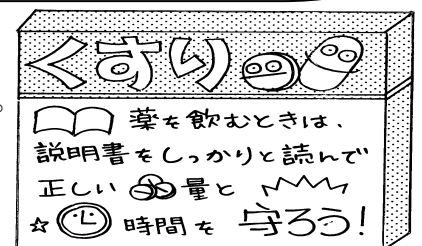 くすり
薬を飲むときは、
説明書をしっかりと読んで
正しい量と
時間を守ろう!